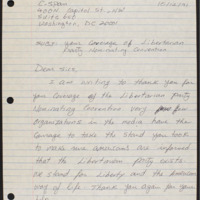 C-SPAN
400N Capitol St., NW
Suite 650
Washington, DC 20001
Your Coverage of Libertarian
Party Nominating Convention
Dear Sir:
I am writing to thank you for
your coverage of the Libertarian party
Nominating Convention very few
organizations in the media have the
courage to take the stand you took
to make sure Americans are informed
that the Libertarian party exists
stand for Liberty and the American
way of life. Thank you again for your